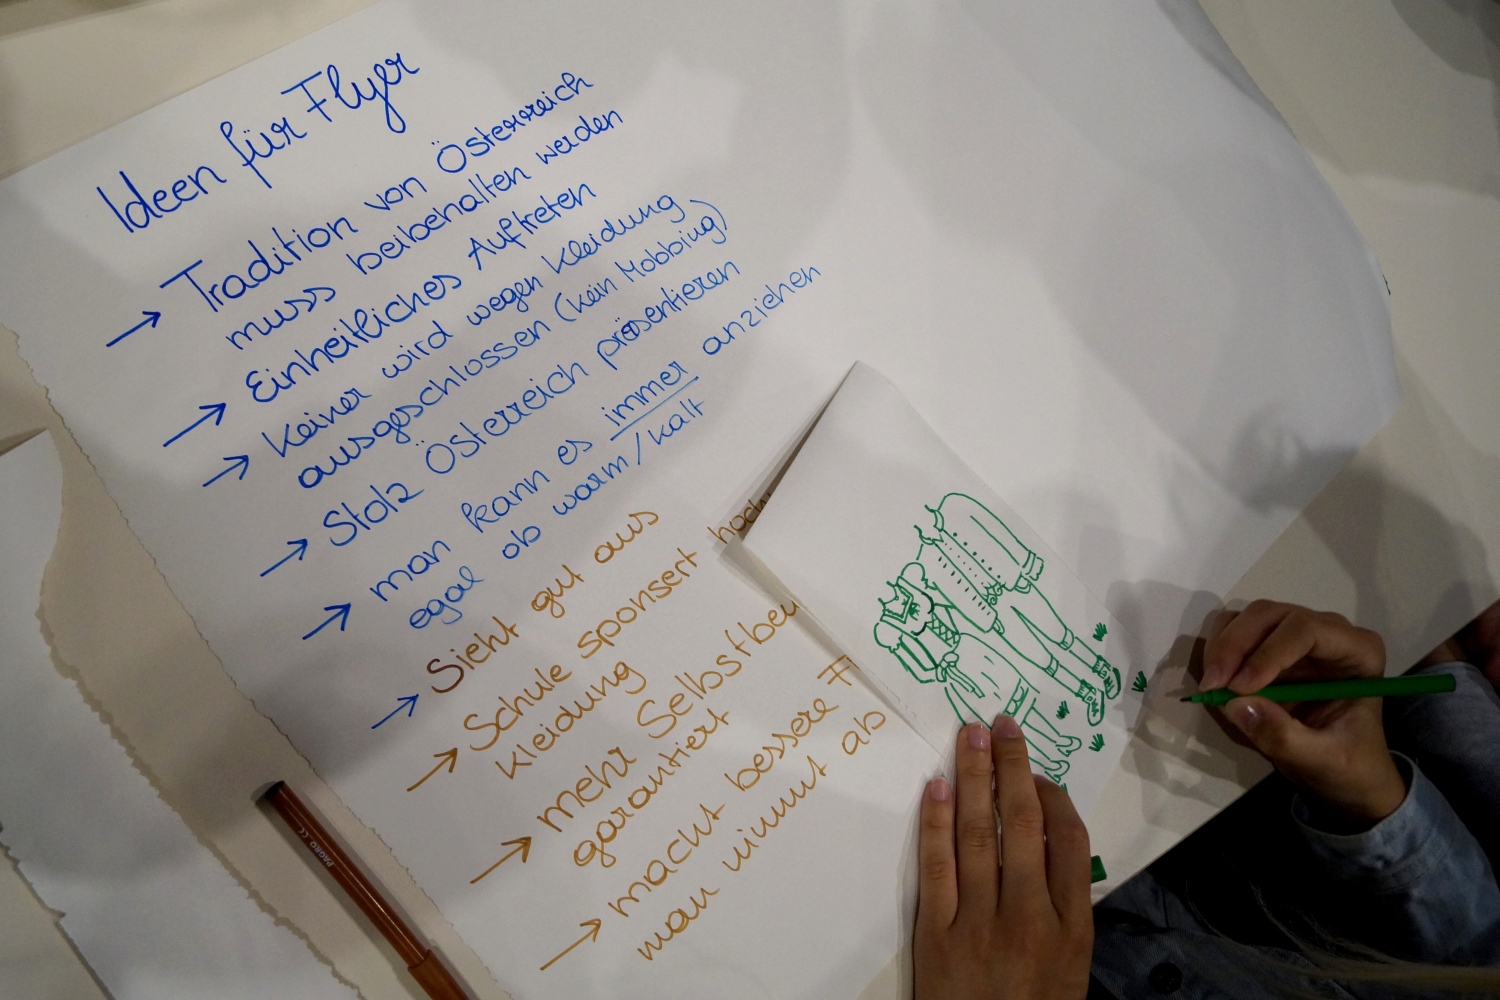 Ideen für Flyer
→ Tradition von Österreich
muss beibehalten werden
→ Einheitliches Auftreten
→ Keiner wird wegen Kleidung
ausgeschlossen (kein Mobbing)
→ Stolz Österreich präsentieren
→ man kann es immer anziehen
egal ob warm/kalt
→ Sieht gut aus
→ Schule sponsert hoch
Kleidung
→ mehr Selbstbe
garantiert
→ macht bessere F
man nimmt ab
PAGRO